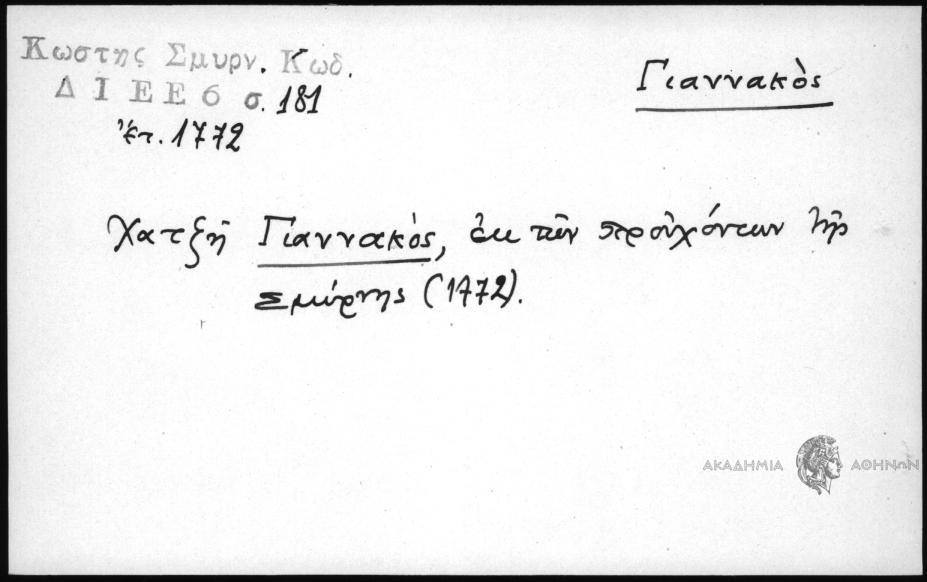 Κωστης Σμυρν. Κωδ.
ΔΙΕΕ6 σ. 181
ἔτ. 1772
Γιαννακὸς
Χατζῆ Γιαννακὸς, ἐκ τῶν προὐχόντων τῆς
Σμύρνης (1772).
ΑΚΑΔΗΜΙΑ ΑΘΗΝΩΝ